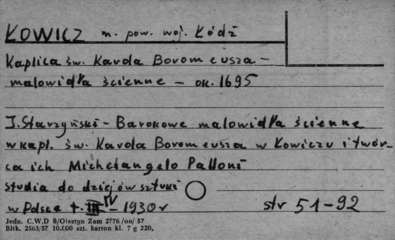 ŁOWICZ m. pow. woj. Łódź
Kaplica św. Karola Boromeusza –
malowidła ścienne – ok. 1695
J. Starzyński – Barokowe malowidła ścienne
w kapl. św. Karola Boromeusza w Łowiczu i twór-
ca ich Michelangelo Palloni
studia do dziejów sztuki
w Polsce t. IV – 1930 r str 51–92
Jedn. C.W.D 8/Olsztyn Zam 2776/on/57
Bltk. 2563/57 10.000 szt. karton kl. 7 g 220,